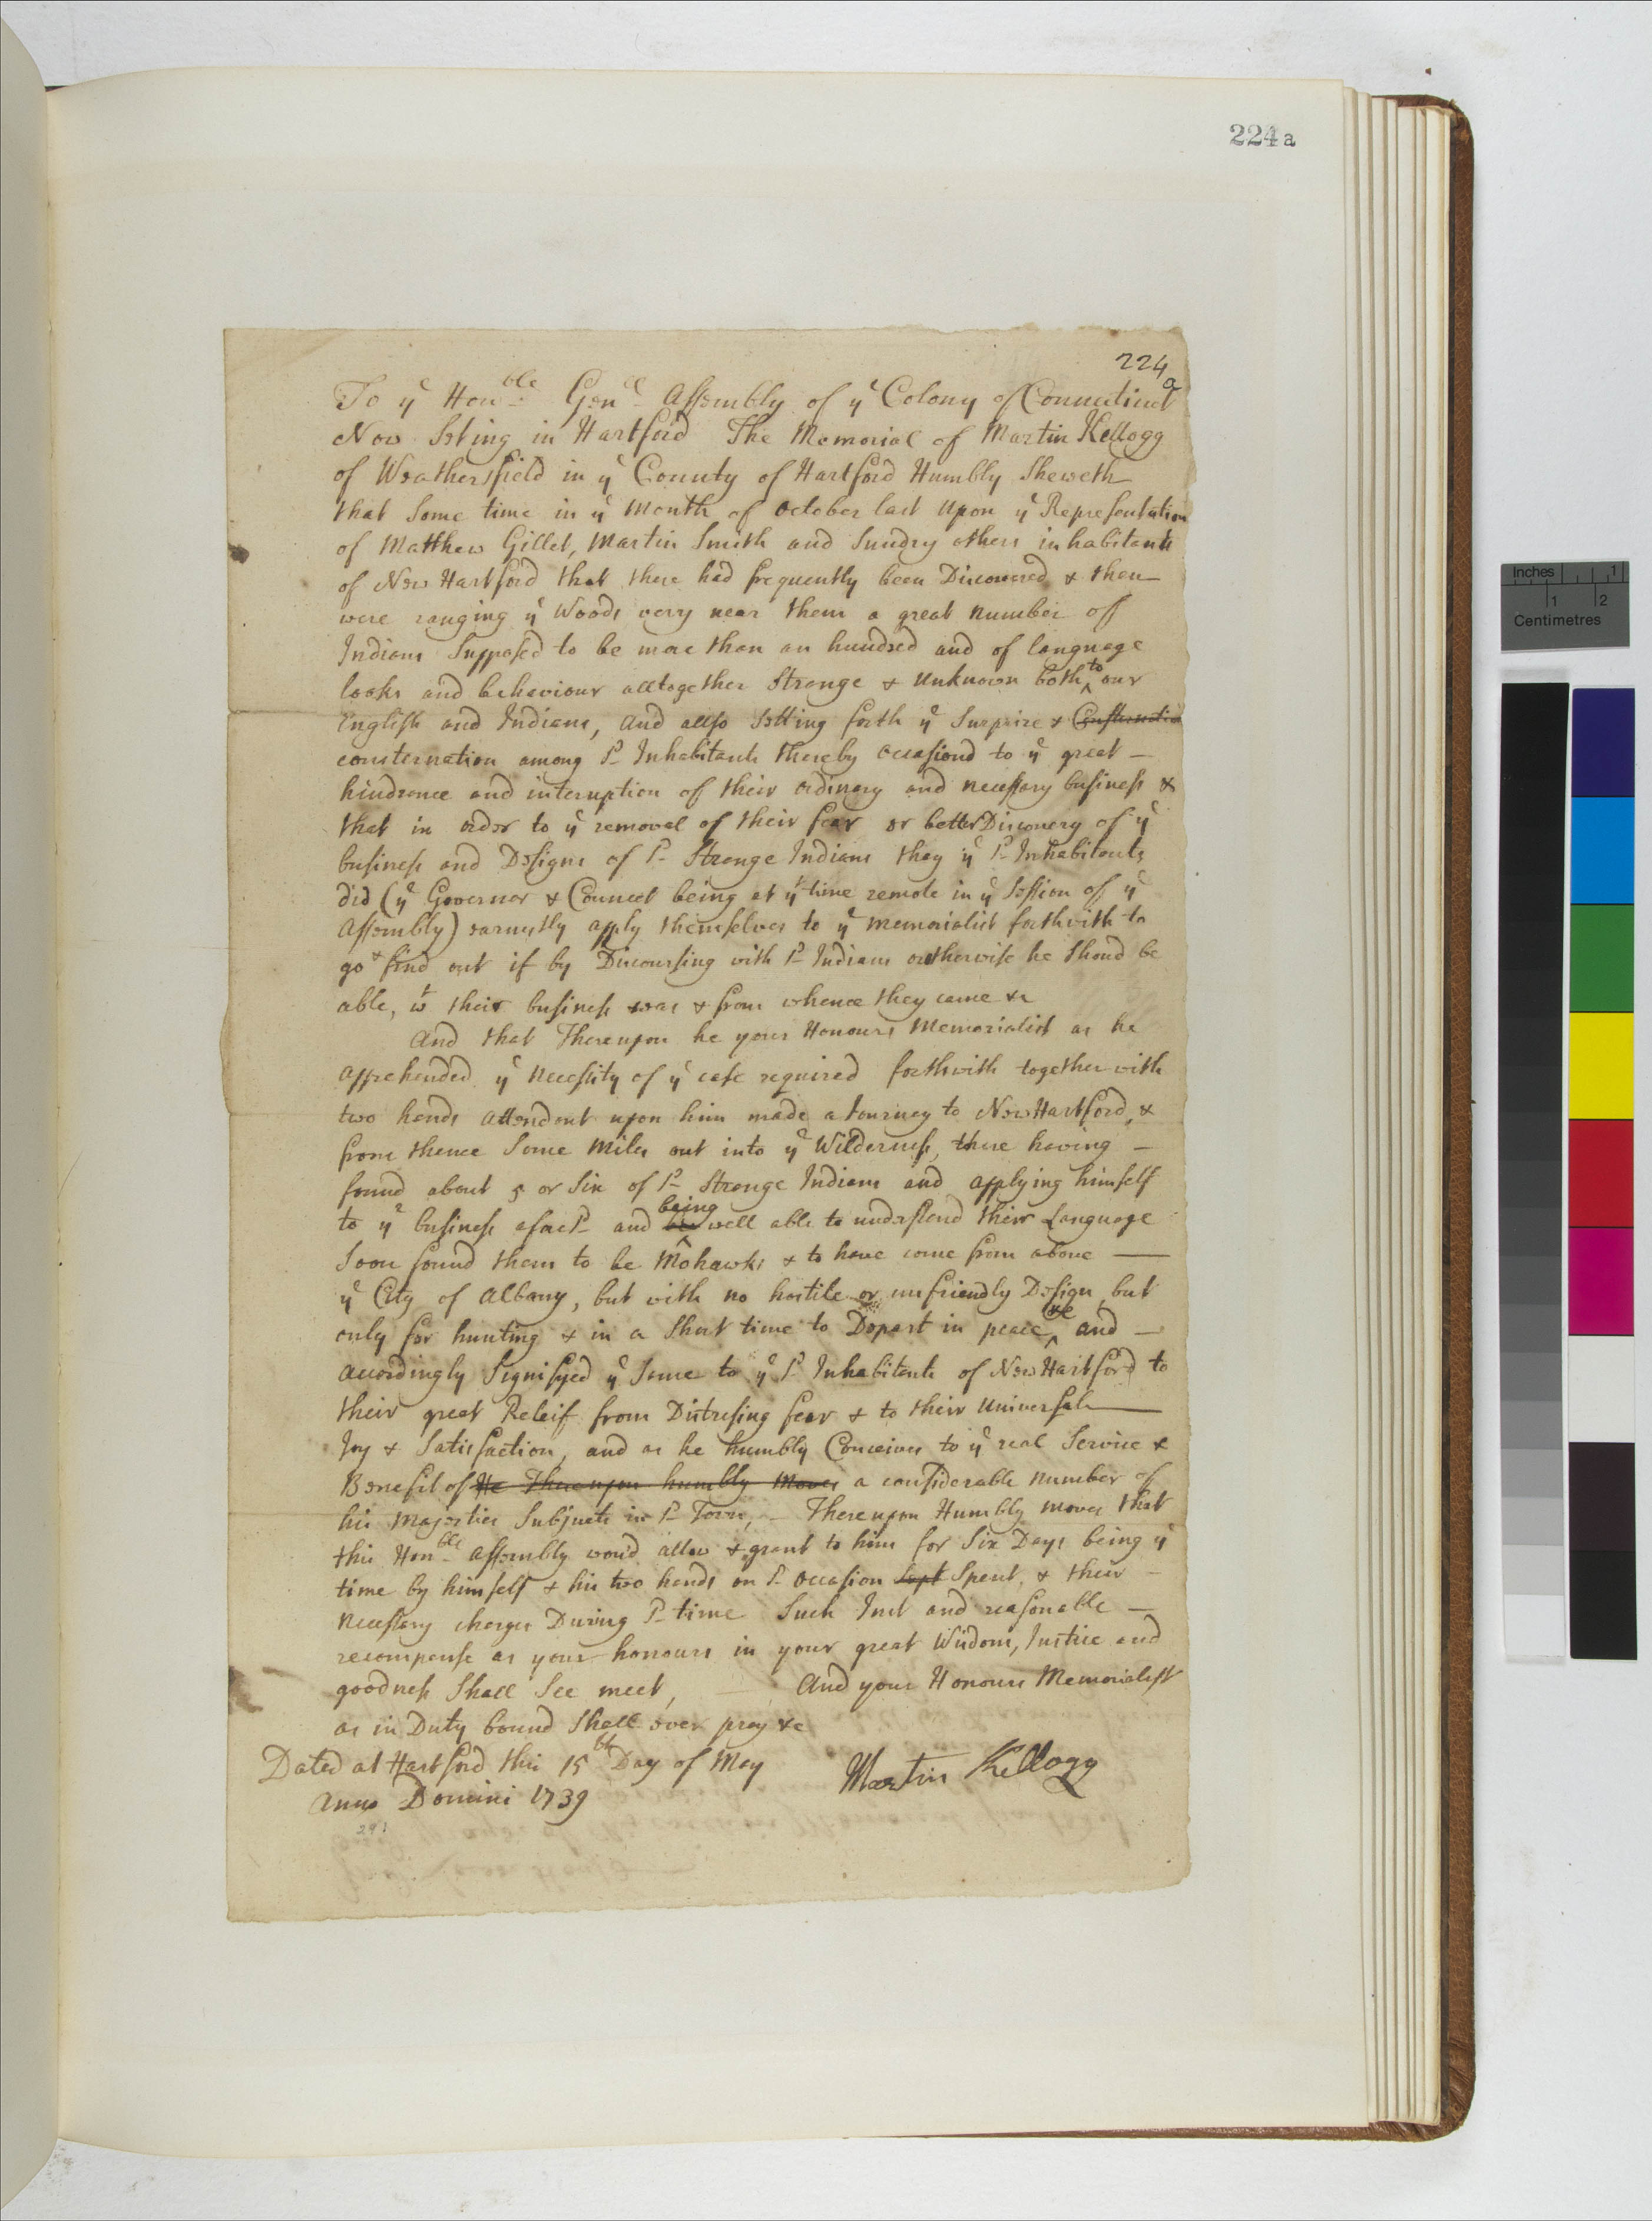 224a
224
a
To yᵉ Honᵇˡᵉ Genˡˡ Assembly of yᵉ Colony of Connecticut
Now Seting in Hartford The Memorial of Martin Kellogg
of Weathersfield in yᵉ County of Hartford Humbly Sheweth
that Some time in yᵉ Month of October last Upon yᵉ Representation
of Matthew Gillet, Martin Smith and Sundry others inhabitants
of New Hartford that there had frequently been Discovered & then
were ranging yᵉ Woods very near them a great number off
Indians Supposed to be more than an hundred and of language
looks and behaviour alltogether Strange & Unknown both to our
English and Indians, and allso Setting forth yᵉ Surprize & Consternation
consternation among sᵈ Inhabitants thereby occasiond to yᵉ great —
hindrance and interuption of their ordinary and necessary business &
that in order to yᵉ removal of their fear or better Discovery of yᵉ
business and Designs of sᵈ Strange Indians they yᵉ sᵈ Inhabitants
did (yᵉ Governor & Councel being at yᵗ time remote in yᵉ Session of yᵉ
Assembly) earnestly apply themselves to yᵉ Memorialist forthwith to
go & find out if by Discoursing with sᵈ Indians or otherwise he Shoud be
able, wᵗ their business was & from whence they came &c
And that Thereupon he your Honours Memorialist as he
apprehended yᵉ Necessity of yᵉ case required forthwith together with
two hands attendant upon him made a Journey to New Hartford, &
from thence Some Miles out into yᵉ Wilderness, there having —
found about 5 or Six of sᵈ Strange Indians and applying himself
to yᵉ business aforesᵈ and be being well able to understand their Language
Soon found them to be Mohawks & to have come from above —
yᵉ City of Albany, but with no hostile or unfriendly Design but
only for hunting & in a Short time to Depart in peace &c and —
accordingly Signifyed yᵉ Same to yᵉ sᵈ Inhabitants of New Hartford to
their great Releif from Distresing fear & to their Universal —
Joy & Satisfaction, and as he humbly Conceives to yᵉ real Service &
Benefit of He Thereupon humbly Moves a considerable number of
his Majesties Subjects in sᵈ Town, — Thereupon Humbly moves that
this Honᵇˡᵉ Assembly woud allow & grant to him for Six Days being yᵉ
time by himself & his two hands on sᵈ occasion Sept Spent, & their —
necessary charges During sᵈ time Such Just and reasonable —
recompense as your honours in your great Wisdom, Justice and
goodness Shall See meet, — And your Honours Memorialist
as in Duty bound Shall ever pray &c
Dated at Hartford this 15th Day of May
Anno Domini 1739
Martin Kellogg
Inches 1
1 2
Centimetres